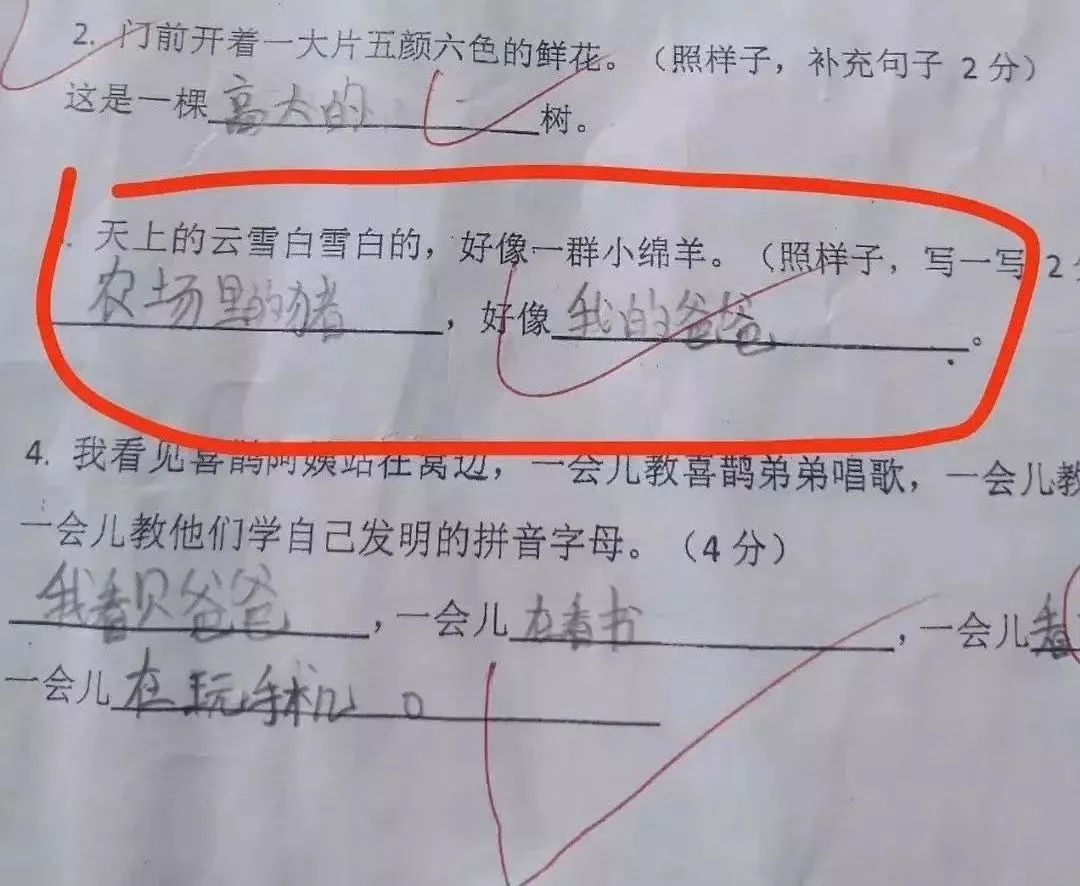 2. 门前开着一大片五颜六色的鲜花。（照样子，补充句子 2 分）
这是一棵高大的树。
天上的云雪白雪白的，好像一群小绵羊。（照样子，写一写 2
农场里的猪，好像我的爸爸。
4. 我看见喜鹊阿姨站在窝边，一会儿教喜鹊弟弟唱歌，一会儿教
一会儿教他们学自己发明的拼音字母。（4 分）
我看见爸爸，一会儿在看书，一会儿看
一会儿在玩手机。